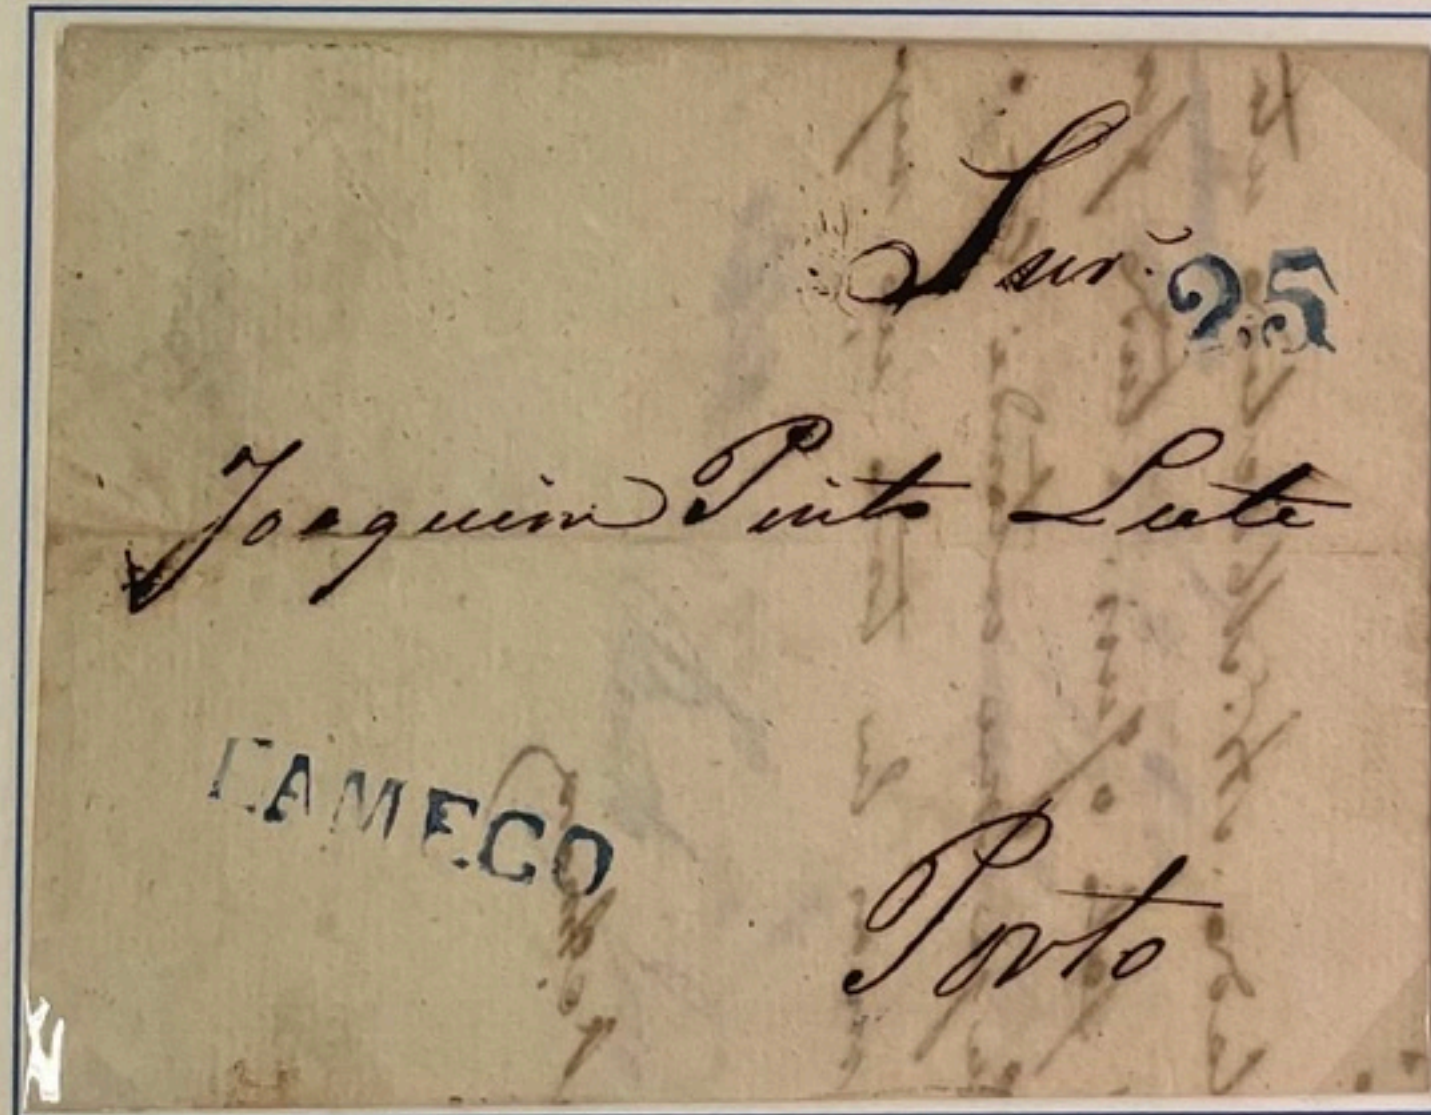 Snr.
25
Joaquim Pinto Leite
LAMEGO
Porto